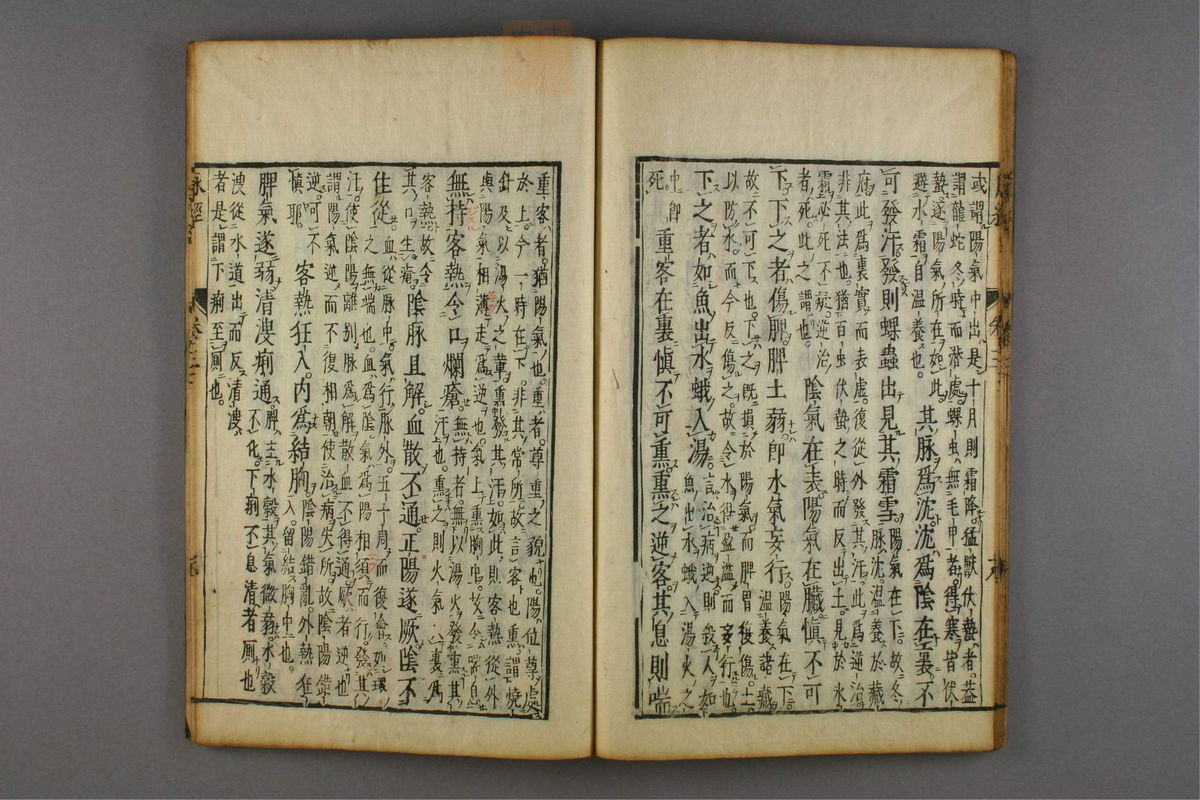 或謂陽氣中出是十月則霜降猛獸伏蟄者蓋
謂龍蛇冬時而潜處蜾虫無毛甲者得寒皆伏
蟄遂陽氣所在如此
避氷霜自温養也其脉爲沈沈爲陰在裏不
可發汗發則蜾蟲出見其霜雪陽氣在下故冬
脉沈温養於藏
府此爲裏實而表虚復從外發其汗此爲逆治
非其法也猶百虫伏蟄之時而反出土見於氷
霜必死不疑逆治
者死此之謂也陰氣在表陽氣在臓愼不可
下下之者傷脾脾土弱即水氣妄行陽氣在下
温養諸藏
故不可下也下之既損於陽氣而脾胃復傷土
以防水而今反傷之故令水得盈溢而妄行也
下之者如魚出水蛾入湯言治病逆則殺人如
魚出水蛾入湯火之
中即
死重客在裏愼不可熏熏之逆客其息則喘
重客者猶陽氣也重者尊重之貌也陽位尊處
於上今一時在下非其常所故言客也熏謂燒
針及以湯火之軰熏發其汗如此則客熱從外
與陽氣相薄是爲逆也氣上熏胸中故令喘息
無持客熱令口爛瘡無持者無以湯火發熏其
汗也熏之則火氣入裏爲
客熱故令
其口生瘡陰脉且解血散不通正陽遂厥陰不
往從血從脉中氣行脉外五十周而復會如環
之無端也血爲陰氣爲陽相須而行發其
汗使陰陽離別脉爲解散血不得通厥者逆也
謂陽氣逆而不復相朝使治病失所故陰陽錯
逆可不
愼耶客熱狂入内爲結胸陰陽錯亂外熱狂
入留結胸中也
脾氣遂弱清溲痢通脾主水穀其氣微弱水穀
不化下痢不息清者厠也
溲從水道出而反清溲
者是謂下痢至厠也
脉經
卷三